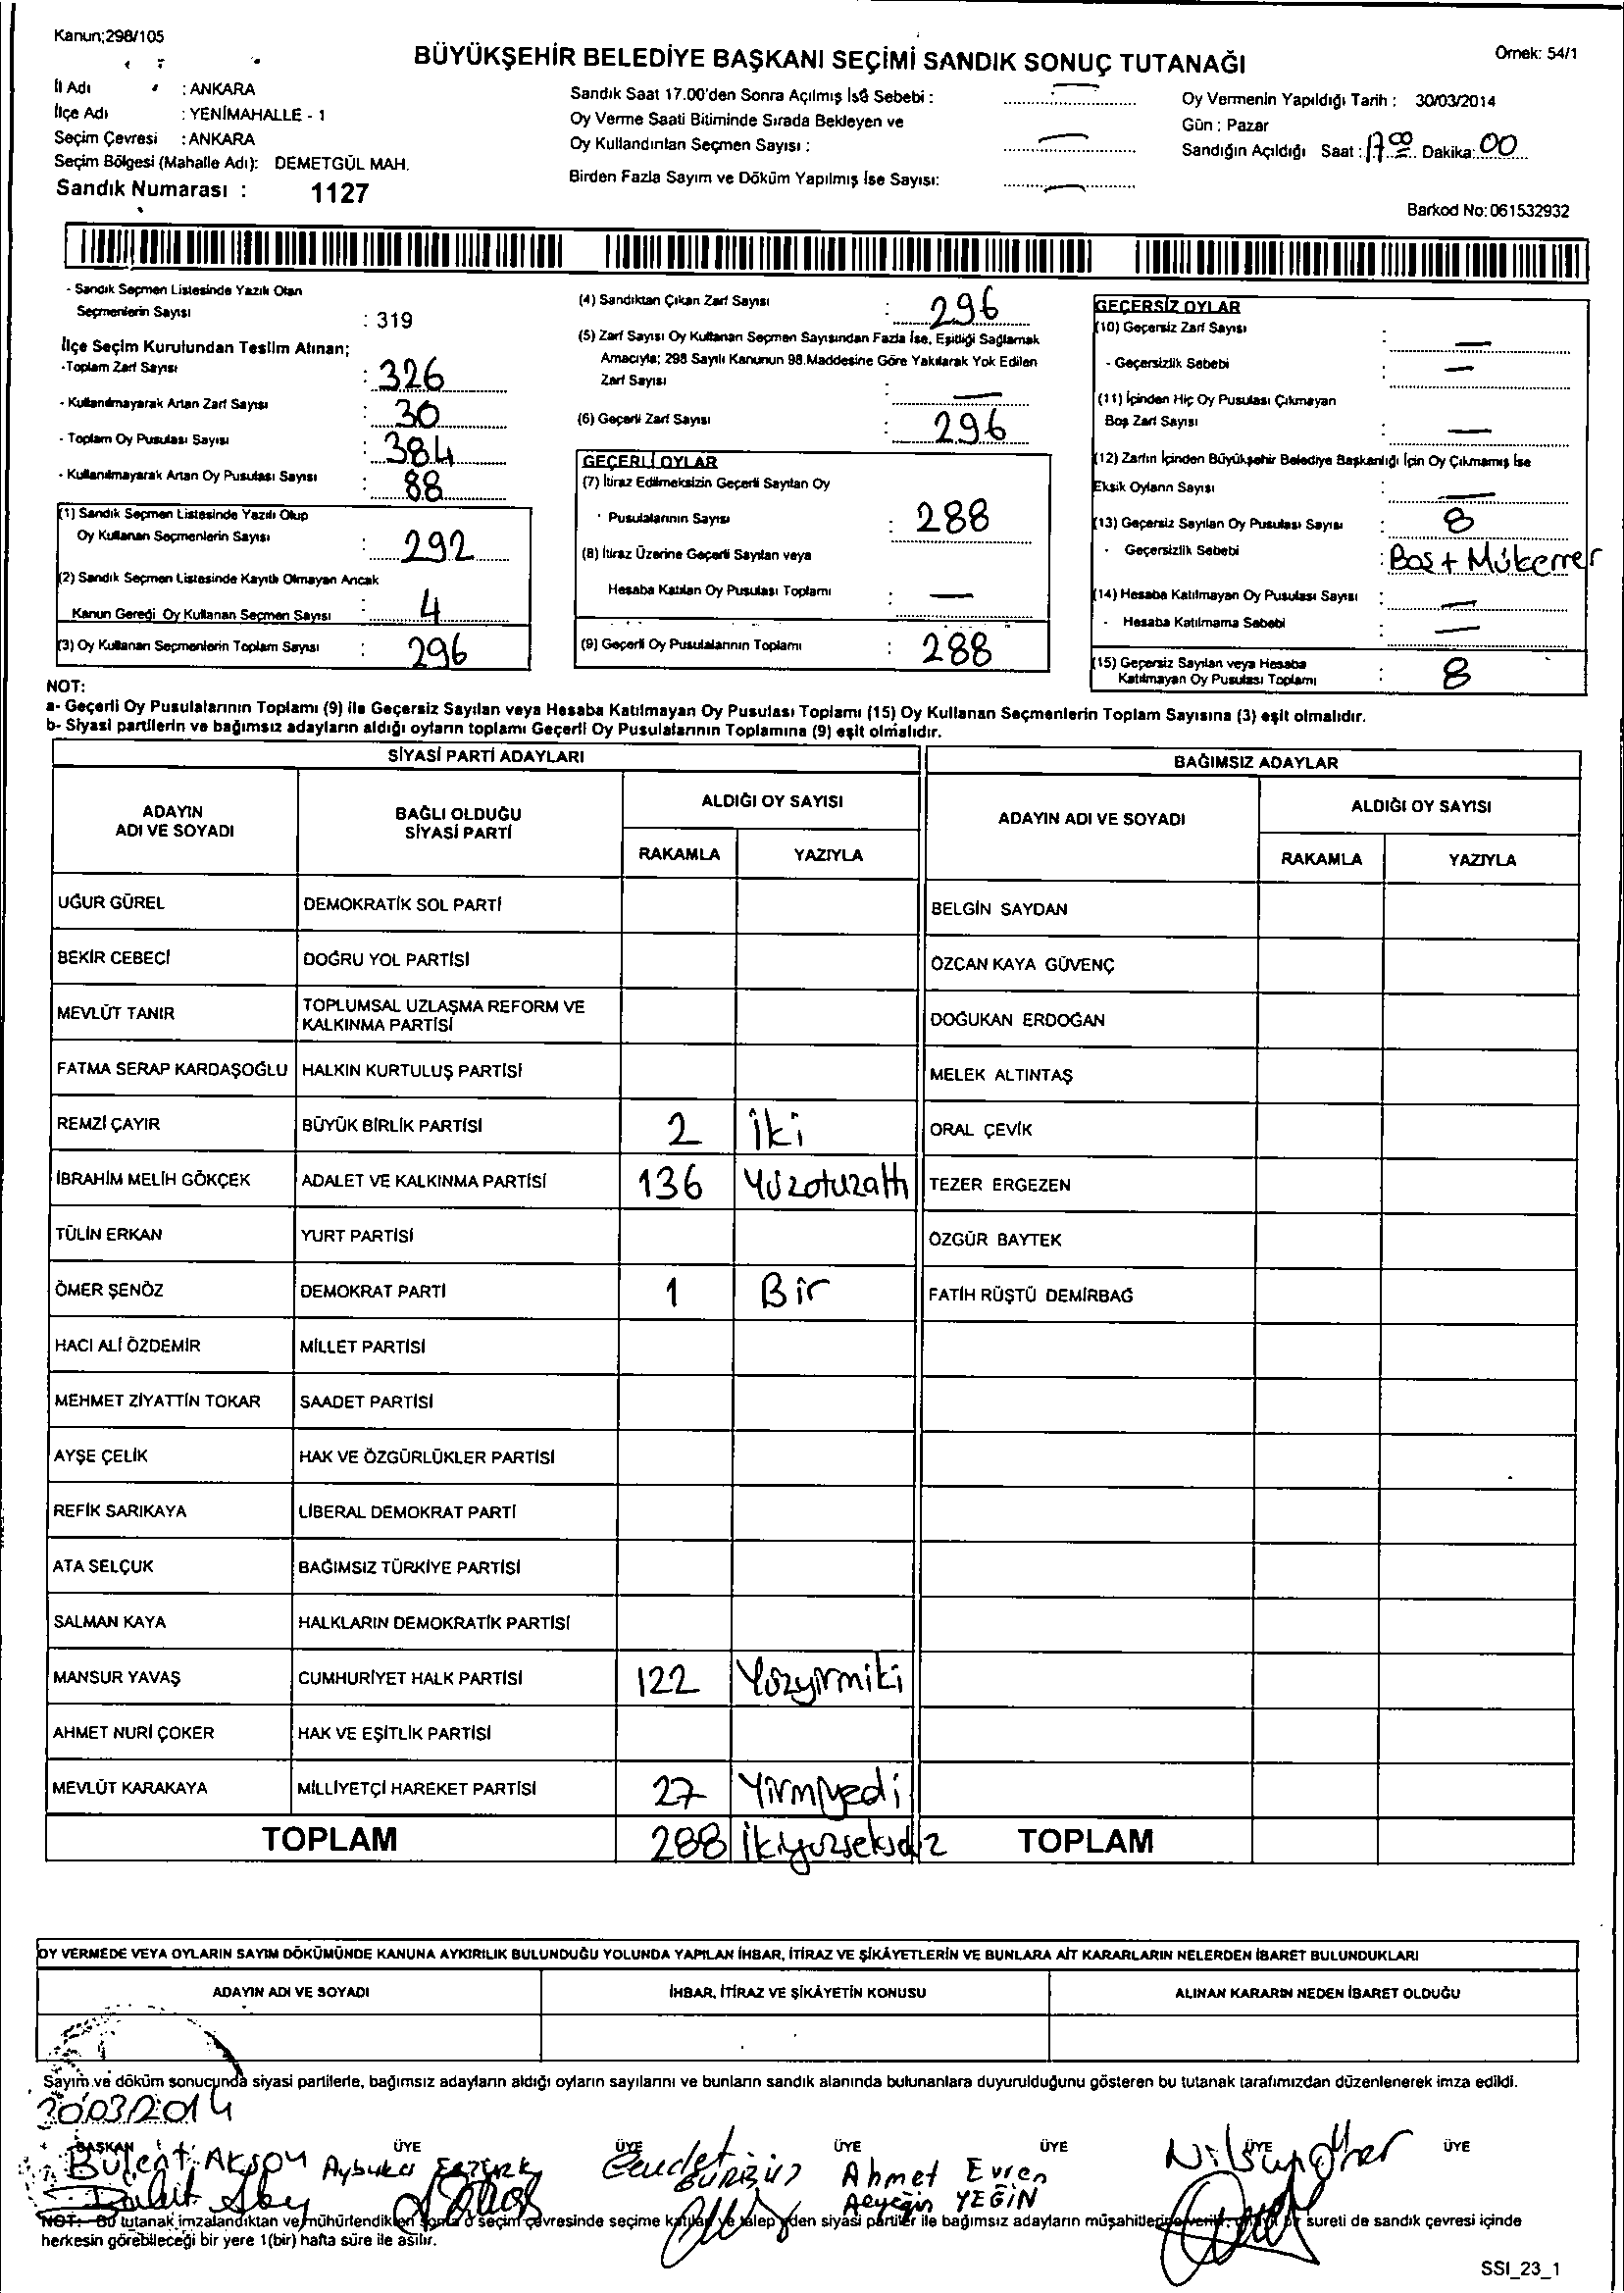 Kanun;298/105
BÜYÜKŞEHİR BELEDİYE BAŞKANI SEÇİMİ SANDIK SONUÇ TUTANAĞI
Örnek: 54/1
İl Adı : ANKARA
İlçe Adı : YENİMAHALLE - 1
Seçim Çevresi : ANKARA
Seçim Bölgesi (Mahalle Adı): DEMETGÜL MAH.
Sandık Numarası : 1127
Sandık Saat 17.00'den Sonra Açılmış İse Sebebi : —
Oy Verme Saati Bitiminde Sırada Bekleyen ve
Oy Kullandırılan Seçmen Sayısı : —
Birden Fazla Sayım ve Döküm Yapılmış İse Sayısı: —
Oy Vermenin Yapıldığı Tarih : 30/03/2014
Gün : Pazar
Sandığın Açıldığı Saat : 17 00 Dakika: 00
Barkod No: 061532932
- Sandık Seçmen Listesinde Yazılı Olan
Seçmenlerin Sayısı : 319
İlçe Seçim Kurulundan Teslim Alınan;
-Toplam Zarf Sayısı : 326
- Kullanılmayarak Artan Zarf Sayısı : 30
- Toplam Oy Pusulası Sayısı : 384
- Kullanılmayarak Artan Oy Pusulası Sayısı : 88
(1) Sandık Seçmen Listesinde Yazılı Olup
Oy Kullanan Seçmenlerin Sayısı : 292
(2) Sandık Seçmen Listesinde Kayıtlı Olmayan Ancak
Kanun Gereği Oy Kullanan Seçmen Sayısı : 4
(3) Oy Kullanan Seçmenlerin Toplam Sayısı : 296
(4) Sandıktan Çıkan Zarf Sayısı : 296
(5) Zarf Sayısı Oy Kullanan Seçmen Sayısından Fazla İse, Eşitliği Sağlamak
Amacıyla; 298 Sayılı Kanunun 98.Maddesine Göre Yakılarak Yok Edilen
Zarf Sayısı : —
(6) Geçerli Zarf Sayısı : 296
GEÇERLİ OYLAR
(7) İtiraz Edilmeksizin Geçerli Sayılan Oy
Pusulalarının Sayısı : 288
(8) İtiraz Üzerine Geçerli Sayılan veya
Hesaba Katılan Oy Pusulası Toplamı : —
(9) Geçerli Oy Pusulalarının Toplamı : 288
GEÇERSİZ OYLAR
(10) Geçersiz Zarf Sayısı : —
- Geçersizlik Sebebi : —
(11) İçinden Hiç Oy Pusulası Çıkmayan
Boş Zarf Sayısı : —
(12) Zarfın İçinden Büyükşehir Belediye Başkanlığı İçin Oy Çıkmamış İse
Eksik Oyların Sayısı : —
(13) Geçersiz Sayılan Oy Pusulası Sayısı : 8
- Geçersizlik Sebebi : Boş + Mükerrer
(14) Hesaba Katılmayan Oy Pusulası Sayısı : —
- Hesaba Katılmama Sebebi : —
(15) Geçersiz Sayılan veya Hesaba
Katılmayan Oy Pusulası Toplamı : 8
NOT:
a- Geçerli Oy Pusulalarının Toplamı (9) ile Geçersiz Sayılan veya Hesaba Katılmayan Oy Pusulası Toplamı (15) Oy Kullanan Seçmenlerin Toplam Sayısına (3) eşit olmalıdır.
b- Siyasi partilerin ve bağımsız adayların aldığı oyların toplamı Geçerli Oy Pusulalarının Toplamına (9) eşit olmalıdır.
SİYASİ PARTİ ADAYLARI
ADAYIN ADI VE SOYADI
BAĞLI OLDUĞU SİYASİ PARTİ
ALDIĞI OY SAYISI
RAKAMLA YAZIYLA
UĞUR GÜREL DEMOKRATİK SOL PARTİ
BEKİR CEBECİ DOĞRU YOL PARTİSİ
MEVLÜT TANIR TOPLUMSAL UZLAŞMA REFORM VE
KALKINMA PARTİSİ
FATMA SERAP KARDAŞOĞLU HALKIN KURTULUŞ PARTİSİ
REMZİ ÇAYIR BÜYÜK BİRLİK PARTİSİ 2 iki
İBRAHİM MELİH GÖKÇEK ADALET VE KALKINMA PARTİSİ 136 Yüzotuzaltı
TÜLİN ERKAN YURT PARTİSİ
ÖMER ŞENÖZ DEMOKRAT PARTİ 1 Bir
HACI ALİ ÖZDEMİR MİLLET PARTİSİ
MEHMET ZİYATTİN TOKAR SAADET PARTİSİ
AYŞE ÇELİK HAK VE ÖZGÜRLÜKLER PARTİSİ
REFİK SARIKAYA LİBERAL DEMOKRAT PARTİ
ATA SELÇUK BAĞIMSIZ TÜRKİYE PARTİSİ
SALMAN KAYA HALKLARIN DEMOKRATİK PARTİSİ
MANSUR YAVAŞ CUMHURİYET HALK PARTİSİ 122 Yüzyirmiki
AHMET NURİ ÇOKER HAK VE EŞİTLİK PARTİSİ
MEVLÜT KARAKAYA MİLLİYETÇİ HAREKET PARTİSİ 27 Yirmiyedi
TOPLAM 288 ikiyüzseksekiz
BAĞIMSIZ ADAYLAR
ADAYIN ADI VE SOYADI
ALDIĞI OY SAYISI
RAKAMLA YAZIYLA
BELGİN SAYDAN
ÖZCAN KAYA GÜVENÇ
DOĞUKAN ERDOĞAN
MELEK ALTINTAŞ
ORAL ÇEVİK
TEZER ERGEZEN
ÖZGÜR BAYTEK
FATİH RÜŞTÜ DEMİRBAĞ
TOPLAM
OY VERMEDE VEYA OYLARIN SAYIM DÖKÜMÜNDE KANUNA AYKIRILIK BULUNDUĞU YOLUNDA YAPILAN İHBAR, İTİRAZ VE ŞİKÂYETLERİN VE BUNLARA AİT KARARLARIN NELERDEN İBARET BULUNDUKLARI
ADAYIN ADI VE SOYADI İHBAR, İTİRAZ VE ŞİKÂYETİN KONUSU ALINAN KARARIN NEDEN İBARET OLDUĞU
Sayım ve döküm sonucunda siyasi partilerle, bağımsız adayların aldığı oyların sayılarını ve bunların sandık alanında bulunanlara duyurulduğunu gösteren bu tutanak tarafımızdan düzenlenerek imza edildi.
30032014
BAŞKAN ÜYE ÜYE ÜYE ÜYE ÜYE ÜYE
Bülent Aksoy Aybuke Cevdet Ahmet Evren
YEĞİN
NOT:- Bu tutanak imzalandıktan ve mühürlendikten sonra o seçim çevresinde seçime katılan ve talep eden siyasi partiler ile bağımsız adayların müşahitlerine verilir, bir sureti de sandık çevresi içinde
herkesin görebileceği bir yere 1(bir) hafta süre ile asılır.
SSI_23_1